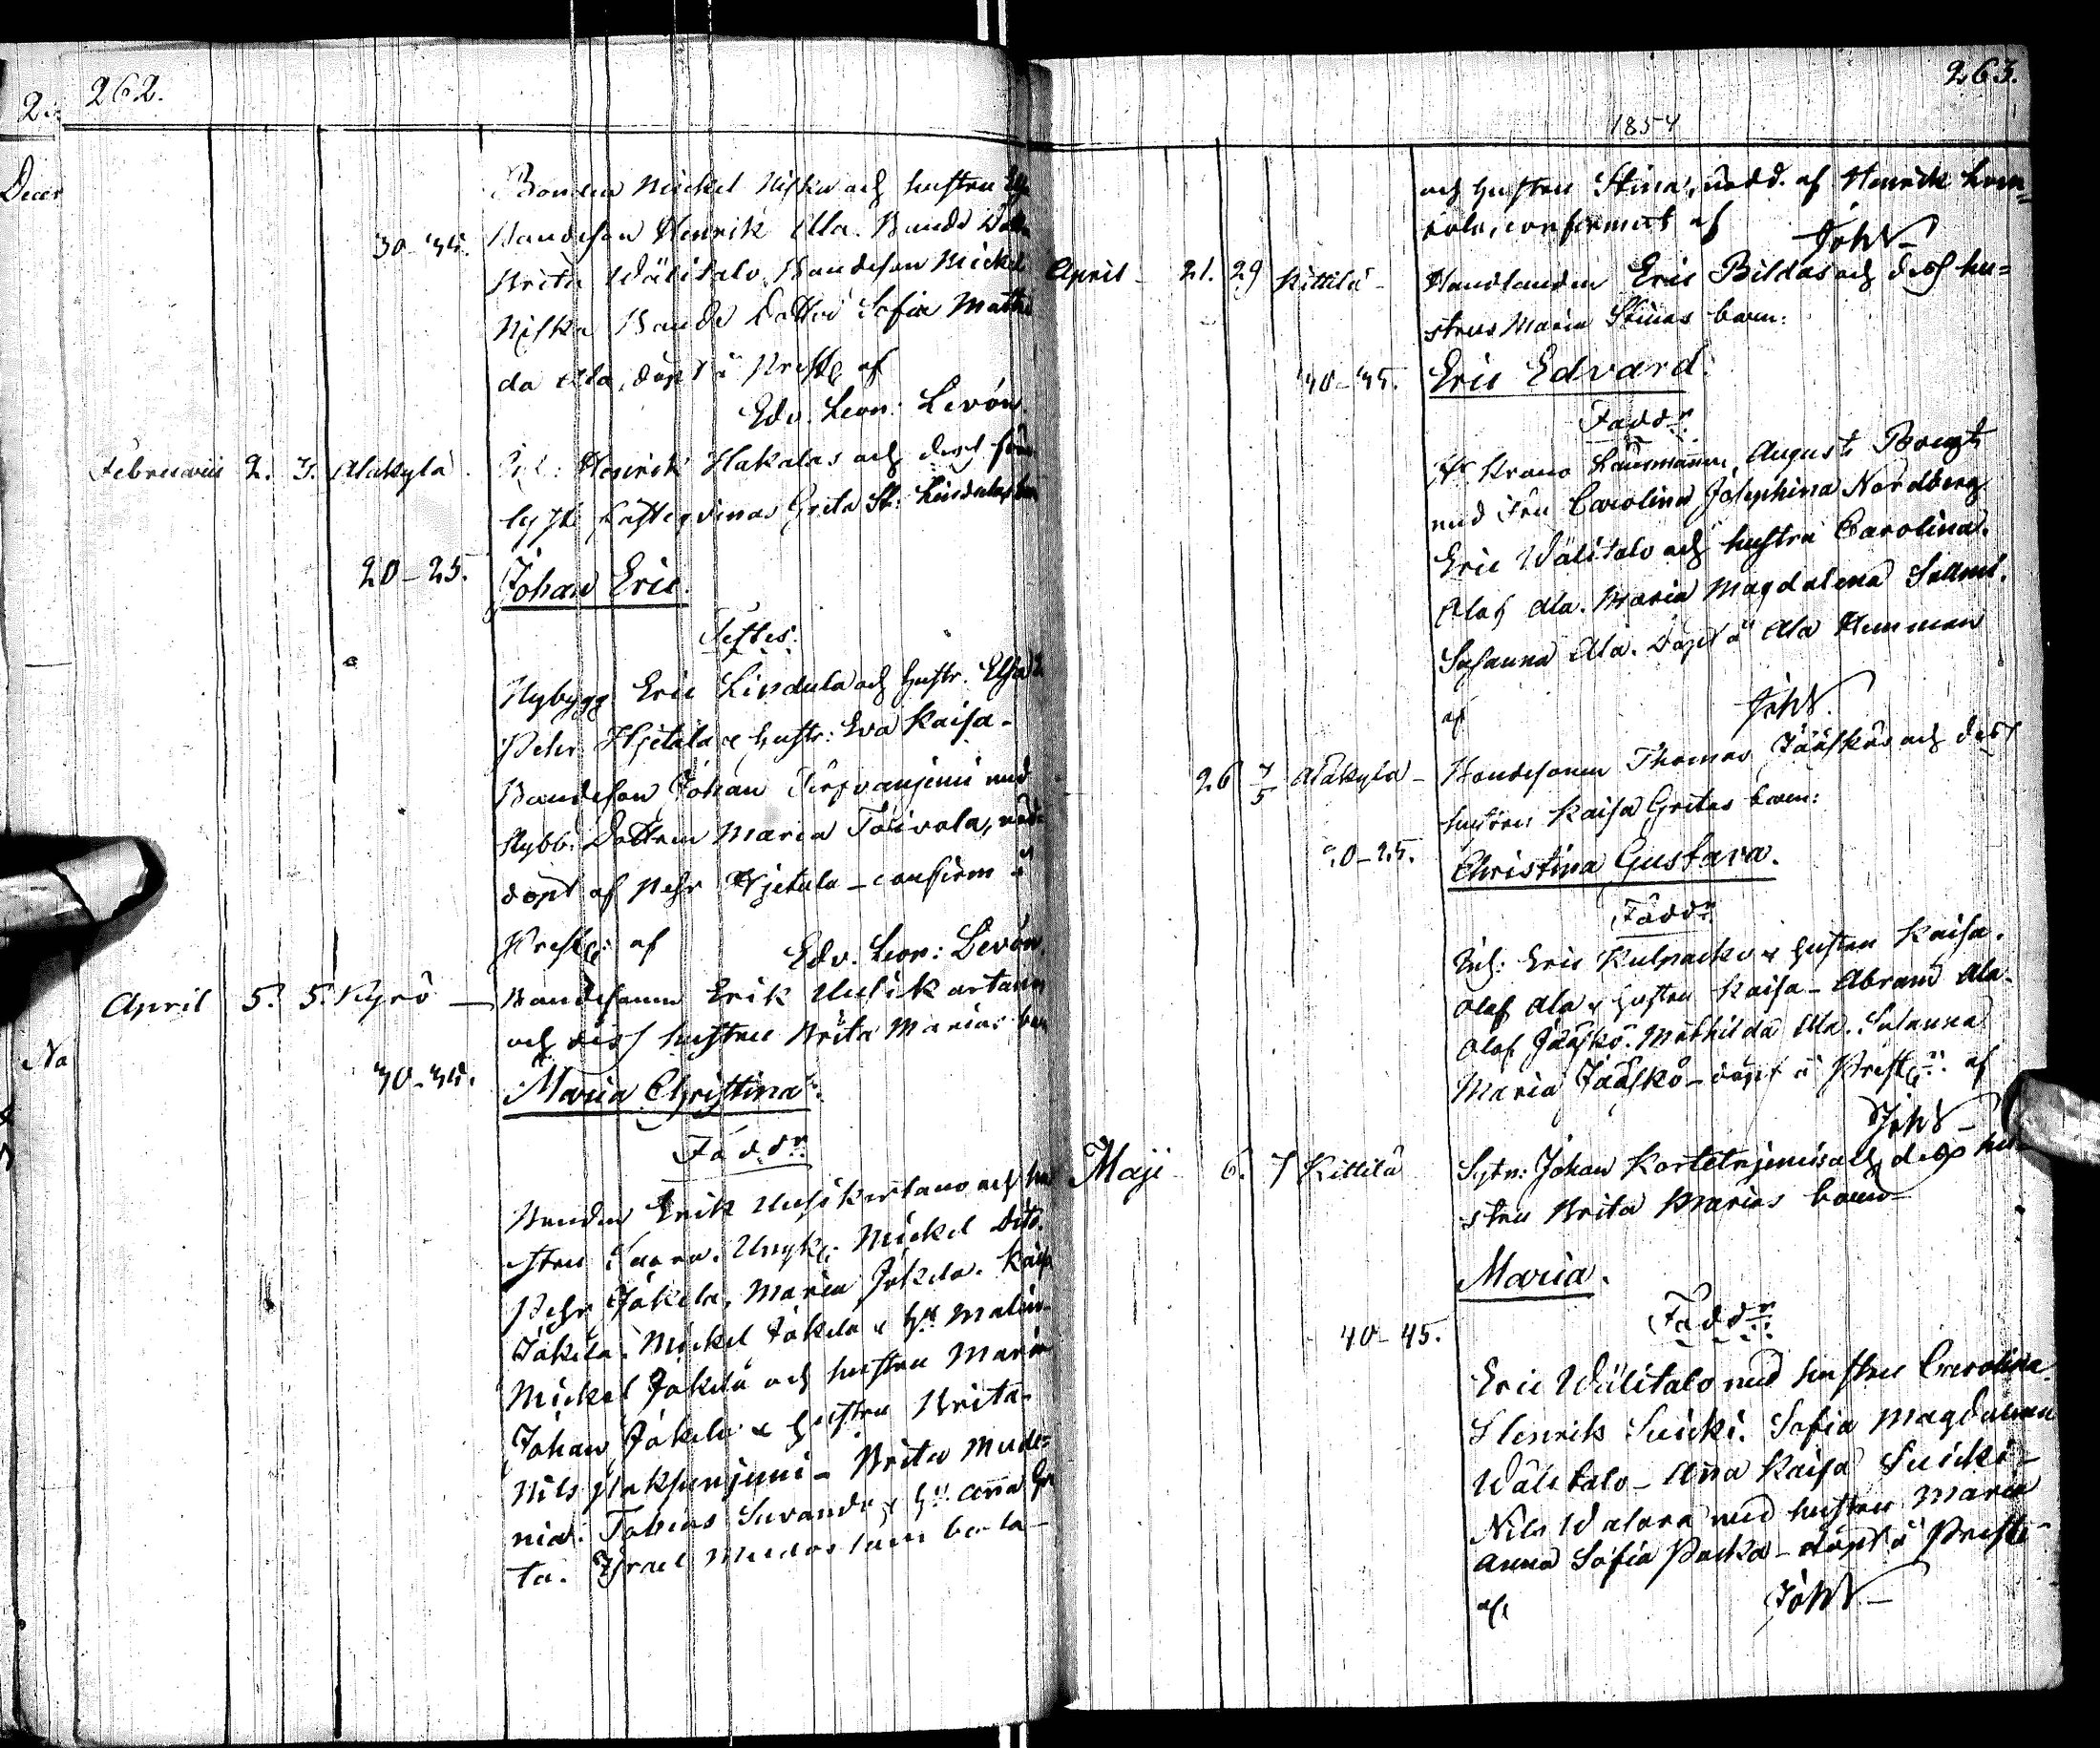 262.
Bonden Mickel Niska och hustru
30-35. Bondeson Henrik Ala. Bonde Dott.
Brita Wälitalo. Bondeson Mickel
Niska Bonde Dotter Sofia Mathil
da Ala, döpt i Prestg. af
Edv. Leon: Levón.
Februarii 2. 3. Alakylä Henrik Hakalas och dess
Grita St: Lindulas
20-25. Johan Eric.
Testes:
Nybygg Eric Lindula och hustr. Elsa
Pehr Hjetala & hustr: Eva Kaisa-
Bondeson Johan med
Nybb: Dottren Maria Toivola, nöd
döpt af Pehr Hjetala - confirm i
Prestg: af Edv. Leon: Levón.
April 5. 5. Kyrö - Bondesonen Erik Uusikartano
och dess hustru Brita Marias barn
30-35. Maria Christina:
Faddr:
Bonden Erik Uusikartano och hu
stru Unyk: Mickel Dito.
Pehr Jåkela, Maria Jåkela. Kaisa
Jåkela. Mickel Jåkela & H: Malin.
Mickel Jåkelä och hustru Maria
Johan Jåkela & hustru Brita.
Nils - Brita Mude=
nia. Tobias & H: Anna Gre
ta. Israel
263.
1854
och hustru Stina, nödd. af Henrik
confirmert af JohW-
April - 21. 29 Kittilä - Handlanden Eric Bildas och dess hu=
strus Maria Stinas barn:
30-35. Eric Edvard:
Faddr:
Hr Krono Länsmannen August Bougt
med Fru Carolina Josephina Nordberg
Eric Wälitalo och hustru Carolina.
Olof Ala. Maria Magdalena Salmi.
Susanna Ala. Döpt å Ala Hemman
af JohW.
26 7/5 Alakylä - Bondesonen Thomas Jääskös och dess
hustrus Kaisa Gretas barn:
20-25. Christina Gustava.
Faddr:
Inh: Eric & hustru Kaisa.
Olof Ala & hustru Kaisa - Abram Ala.
Olof Jääskö. Mathilda Ala. Susanna
Maria Jääskö - döpt å Prestg: af
JohW-
Maji 6. 7 Kittilä Sytn: Johan Kortetnjemis och dess hu-
stru Brita Marias barn-
Maria.
Faddr:
40-45.
Eric Wälitalo med hustru Carolina.
Henrik Suicki. Sofia Magdalena
Wälitalo - Anna Kaisa Suicki-
Nils Walara med hustru Maria
Anna Sofia Packa - döpt å Prestg
af JohW-